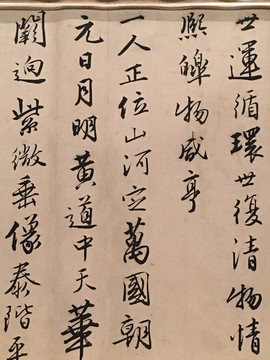 世運循環世復清物情
熙皞物咸亨
一人正位山河定萬國朝
元日月明黃道中天華
闕迥紫微垂像泰階平